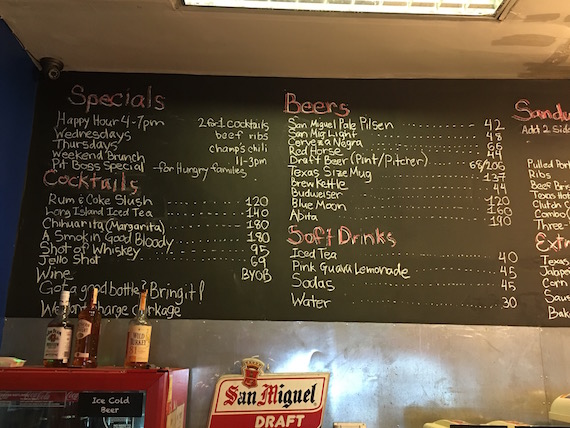 Specials
Happy Hour 4-7pm 2 for 1 cocktails
Wednesdays beef ribs
Thursdays champ's chili
Weekend Brunch 11-3pm
Pit Boss Special - for Hungry families
Cocktails
Rum & Coke Slush 120
Long Island Iced Tea 140
Chihuarita (Margarita) 180
A Smokin Good Bloody 180
Shot of Whiskey 95
Jello Shot 69
Wine BYOB
Got a good bottle? Bring it!
We don't charge corkage
Beers
San Miguel Pale Pilsen 42
San Mig Light 48
Cerveza Negra 66
Red Horse 44
Draft Beer (Pint/Pitcher) 68/206
Texas Size Mug 137
Brewkettle 44
Budweiser 120
Blue Moon 160
Abita 140
Soft Drinks
Iced Tea 40
Pink Guava Lemonade 45
Sodas 45
Water 30
Add 2 Side
Pulled Por
Ribs
Beef Bris
Texas Hot
Clutch C
Combo (
Three-
Extr
Texas
Jalape
Corn
Ice Cold
Beer
San Miguel
DRAFT
WILD
TURKEY